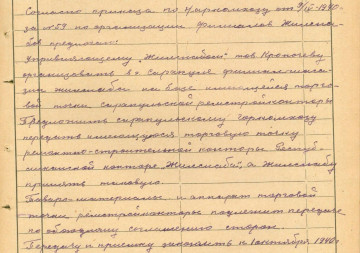 Согласно приказа по Наркомхозу от 9/IX-1940г.
за № 59 по организации филиалов Жилснаб
предлагаю:
Управляющему "Жилснабом" тов.
организовать в г. Сарапуле филиал-магазин
жилснаба на базе имеющейся торговой
точки сарапульской ремстройконторы
Предложить сарапульскому горкомхозу
передать имеющуюся торговую точку
ремонтно-строительной конторы
конторе "Жилснаба", а Жилснабу
принять таковую.
Товаро-материалы и аппарат торговой
точки ремстройконторы подлежит передаче
по обоюдному соглашению сторон.
Передачу и приемку закончить к 1 октября 1940г.